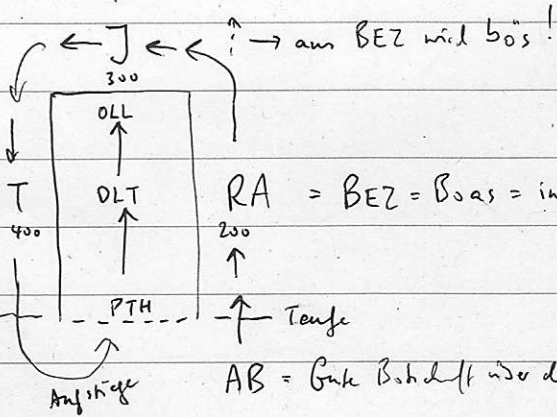 J → aus BEZ wird bös!
300
OLL
T DLT RA = BEZ = Boas = in
400 200
PTH Taufe
Aufstiege AB = Gute Botschaft über d